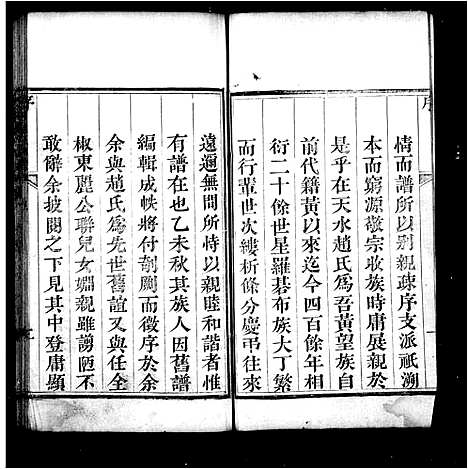 序
情而譜所以别親疎序支派祇溯
本而窮源敬宗收族時庸展親於
是乎在天水趙氏爲吾黃望族自
前代籍黃以來迄今四百餘年相
衍二十餘世星羅碁布族大丁繁
而行輩世次縷析條分慶弔往來
遠邇無間所恃以親睦和諧者惟
有譜在也乙未秋其族人因舊譜
編輯成帙將付剞劂而徵序於余
余與趙氏爲先世舊誼又與任余
椒東麗公聯兒女婣親雖謭陋不
敢辭余披閱之下見其中登庸顯